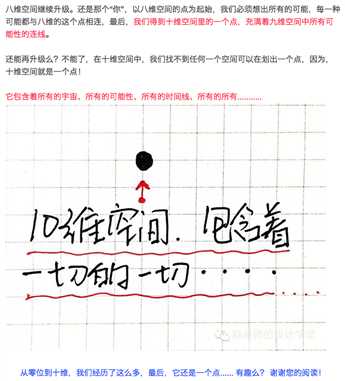 八维空间继续升级。还是那个“你”，以八维空间的点为起始，我们必须想出所有的可能，每一种
可能都与八维的这个点相连，最后，我们得到十维空间里的一个点，充满着九维空间中所有可
能性的连线。
还能再升级么？不能了，在十维空间中，我们找不到任何一个空间可以在划出一个点，因为，
十维空间就是一个点！
它包含着所有的宇宙、所有的可能性、所有的时间线、所有的所有…………
10维空间．包含着
一切的一切．．．．
从零位到十维，我们经历了这么多，最后，它还是一个点…… 有趣么？ 谢谢您的阅读!